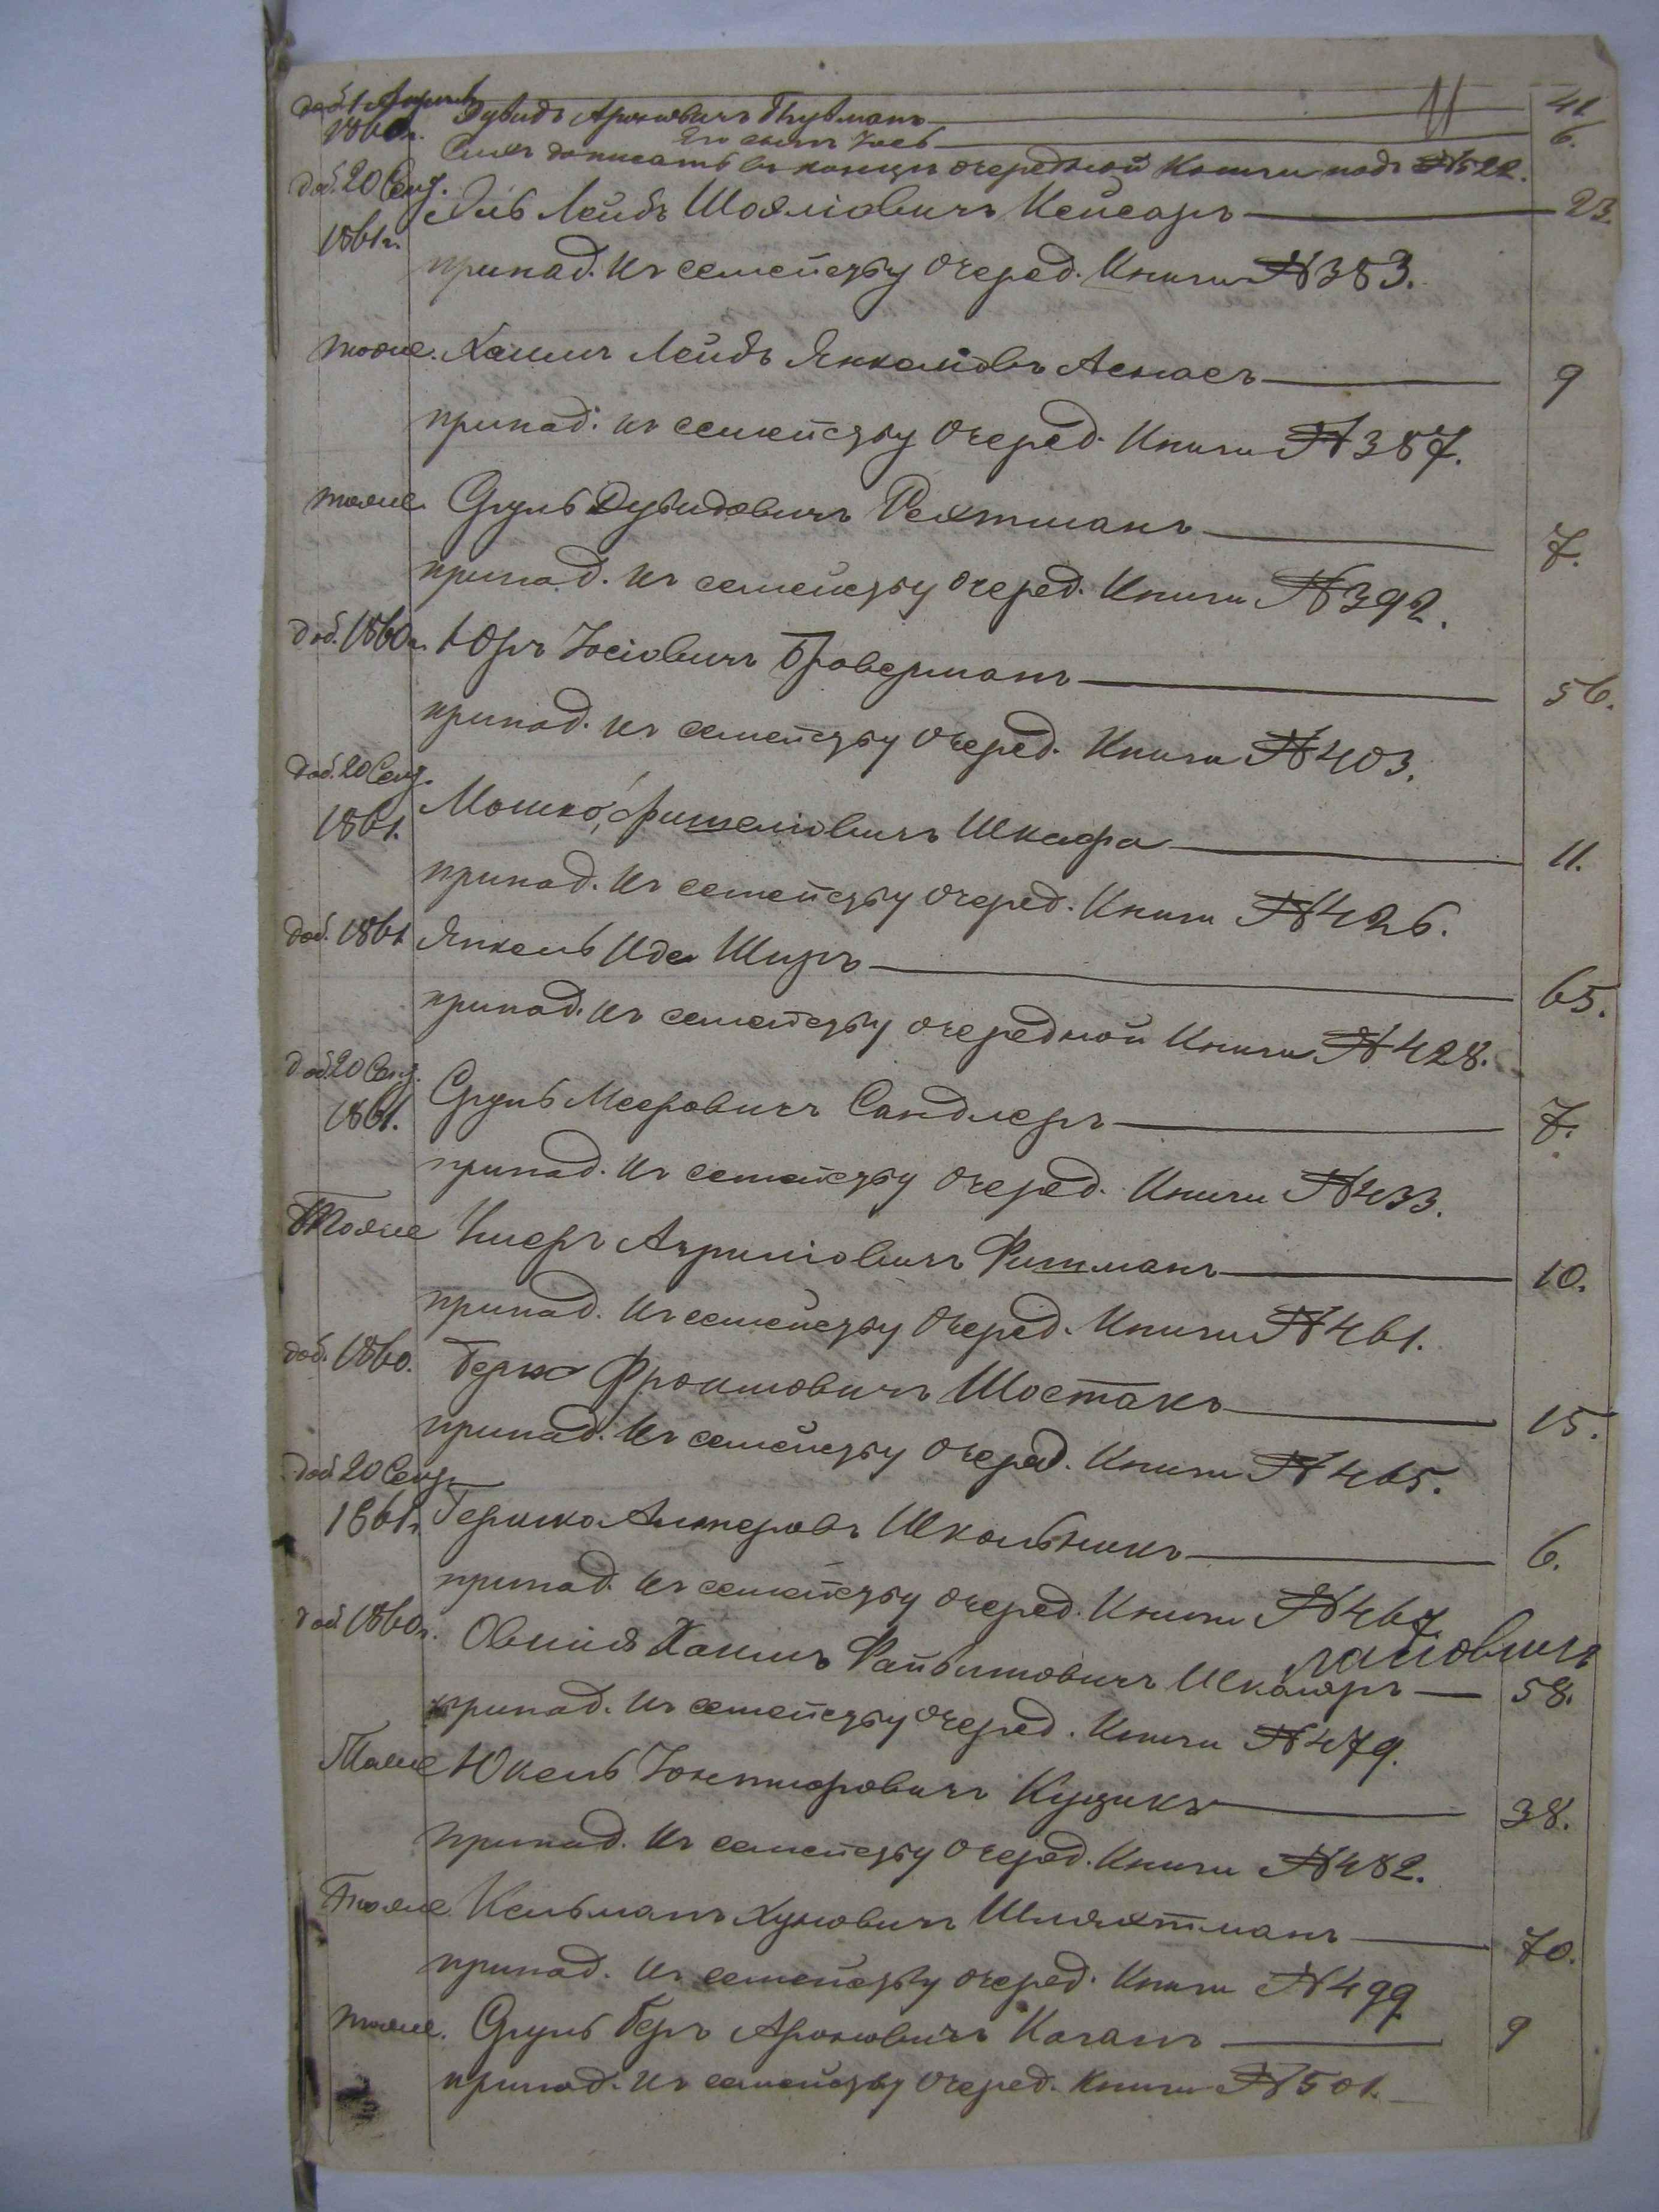 доб. 1 Апреля Дувидъ Ароновичъ Гlутманъ 41
1860г. Его сынъ Іось 6.
Сихъ дописать въ конце очередной Книги подъ № 522.
доб. 20 Сент. Лейбъ Шоэліовичъ Кейсаръ 23.
1861г.
принад. къ семейству Очеред. Книги № 383.
тоже. Хаимъ Лейбъ Янкеліовъ Аснасъ 9
принад. къ семейству Очеред. Книги № 387.
тоже Сруль Дувидовичъ Рехтманъ 7.
принад. къ семейству Очеред. Книги № 392.
доб. 1860г. Юръ Іосіовичъ Броверманъ 56.
принад. къ семейству Очеред. Книги № 403.
доб. 20 Сент.
1861. Мошко Фишеліовичъ Шкафа 11.
принад. къ семейству Очеред. Книги № 426.
доб. 1861 Янкель Идел Ширъ 65.
принад. къ семейству очередной Книги № 428.
доб. 20 Сент.
1861. Сруль Мееровичъ Сандлеръ 7.
принад. къ семейству Очеред. Книги № 433.
Тоже Ицеръ Фишманъ 10.
принад. къ семейству Очеред. Книги № 461.
доб. 1860. Берко Фроимовичъ Шостакъ 15.
принад. къ семейству Очеред. Книги № 465.
доб 20 Сент
1861г. Гершко Альтеровъ Школьникъ 6.
принад. къ семейству Очеред. Книги № 467
доб 1860г. Овшія Хаимъ Файвишовичъ Школяръ 58.
принад. къ семейству очеред. Книги № 479.
Тоже Юкель Іонтифовичъ Куцикъ 38.
принад. къ семейству Очеред. Книги № 482.
Тоже Кельманъ Хуновичъ Шляхтманъ 70.
принад. къ семейству очеред. Книги № 499
тоже. Сруль Беръ Ароновичъ Каганъ 9
принад. къ семейству Очеред. Книги № 501.